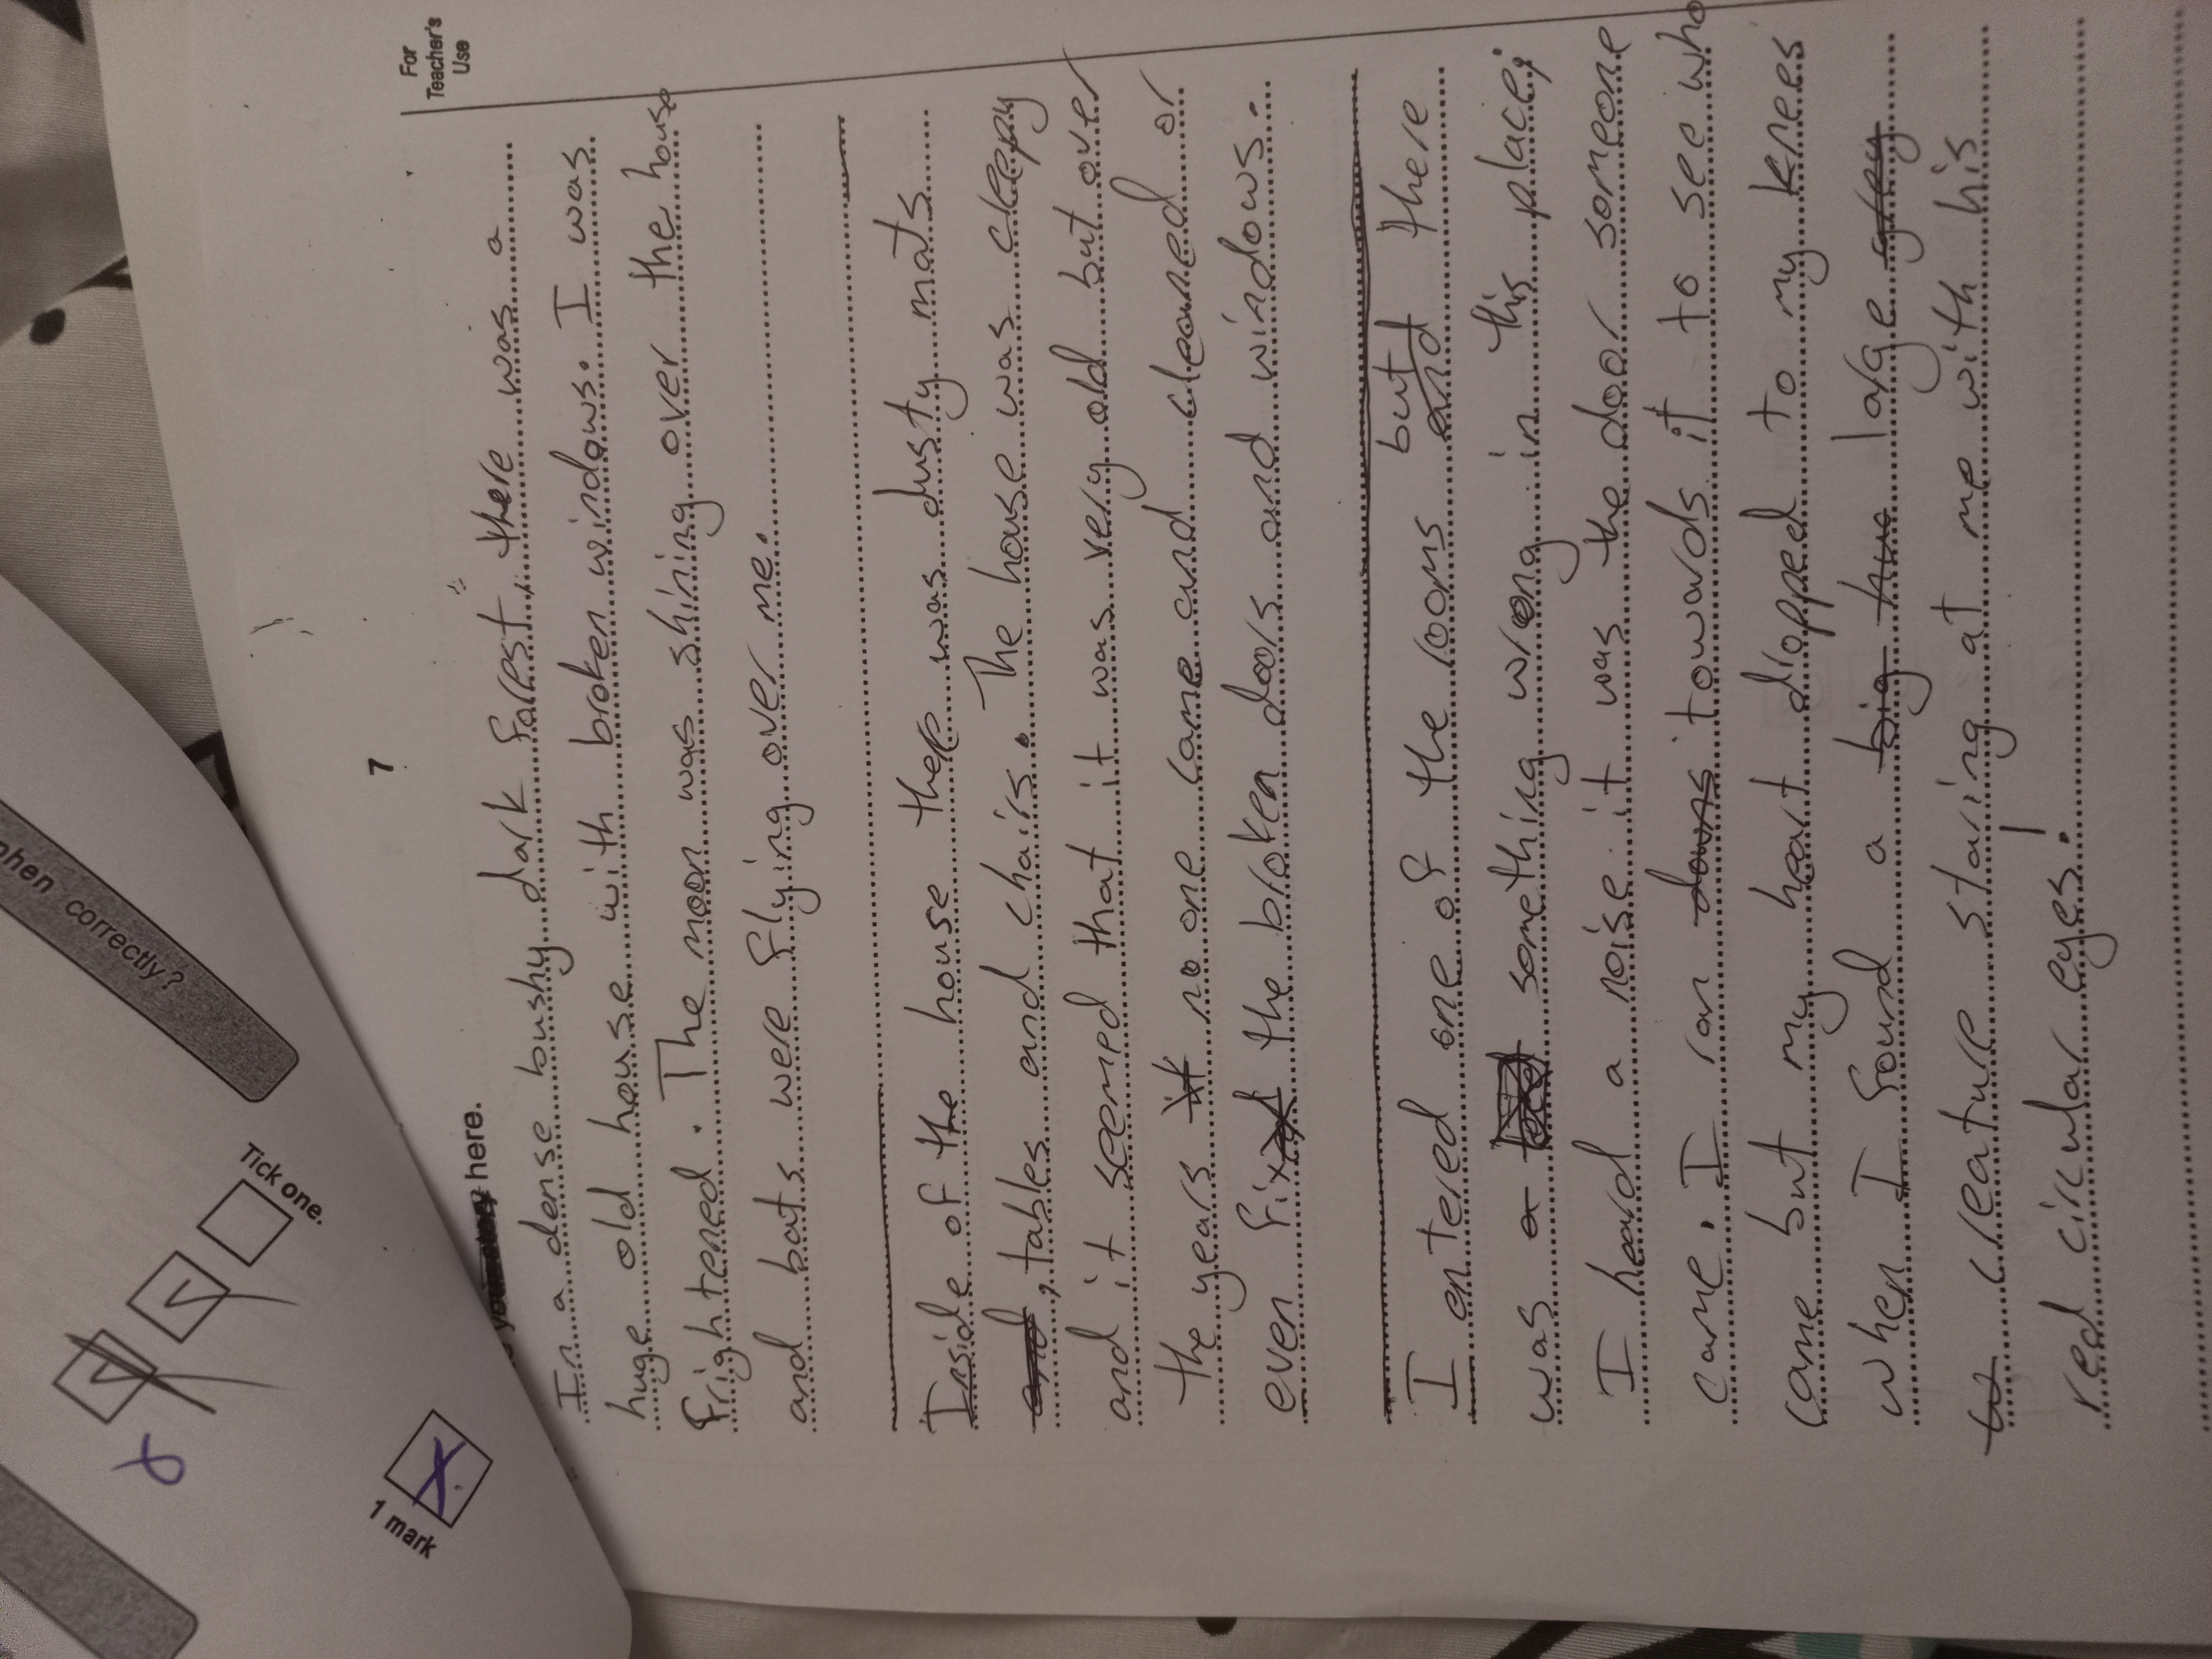 phen correctly?
Tick one.
1 mark
7
For
Teacher's
Use
here.
In a dense bushy dark forest, there was a
huge old house with broken windows. I was
frightened. The moon was shining over the house
and bats were flying over me.
Inside of the house there was dusty mats
and, tables and chairs. The house was cleepy
and it seemed that it was very old but over
the years it no one came and cleaned or
even fix the broken doors and windows.
I entered one of the rooms but and there
was a something wrong in this place;
I heard a noise it was the door someone
came. I ran downs towards it to see who
came but my heart dropped to my knees
when I found a big hue large
creature staring at me with his
red circular eyes!